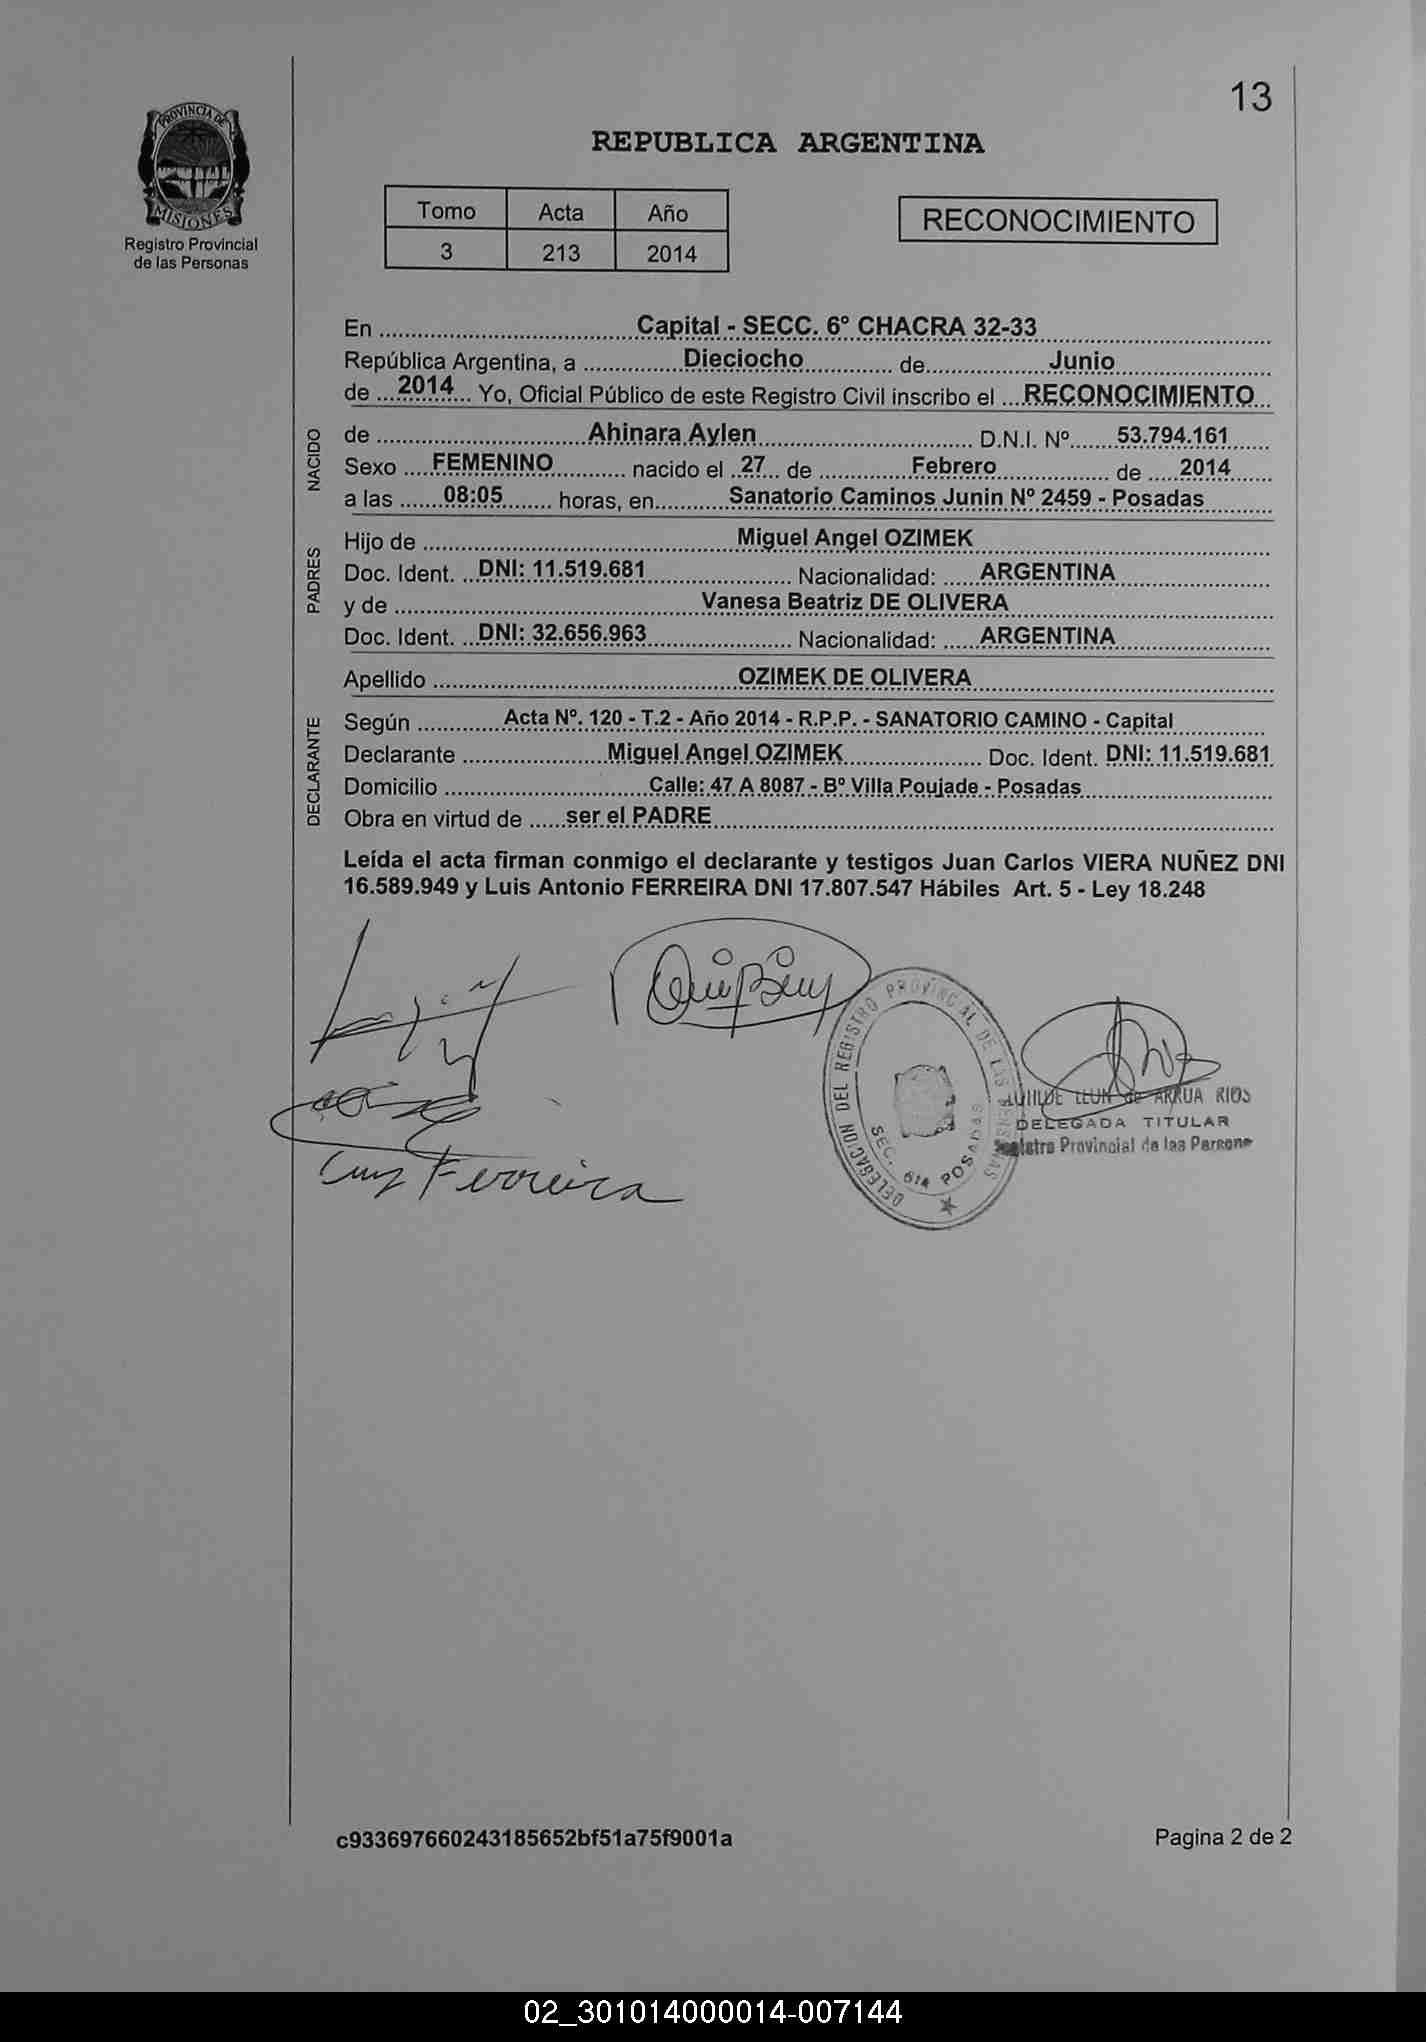 13
PROVINCIA DE
MISIONES
Registro Provincial
de las Personas
REPUBLICA ARGENTINA
Tomo Acta Año
3 213 2014
RECONOCIMIENTO
En Capital - SECC. 6º CHACRA 32-33
República Argentina, a Dieciocho de Junio
de 2014 Yo, Oficial Público de este Registro Civil inscribo el RECONOCIMIENTO
NACIDO
de Ahinara Aylen D.N.I. Nº 53.794.161
Sexo FEMENINO nacido el 27 de Febrero de 2014
a las 08:05 horas, en Sanatorio Caminos Junin Nº 2459 - Posadas
PADRES
Hijo de Miguel Angel OZIMEK
Doc. Ident. DNI: 11.519.681 Nacionalidad: ARGENTINA
y de Vanesa Beatriz DE OLIVERA
Doc. Ident. DNI: 32.656.963 Nacionalidad: ARGENTINA
Apellido OZIMEK DE OLIVERA
DECLARANTE
Según Acta Nº. 120 - T.2 - Año 2014 - R.P.P. - SANATORIO CAMINO - Capital
Declarante Miguel Angel OZIMEK Doc. Ident. DNI: 11.519.681
Domicilio Calle: 47 A 8087 - Bº Villa Poujade - Posadas
Obra en virtud de ser el PADRE
Leída el acta firman conmigo el declarante y testigos Juan Carlos VIERA NUÑEZ DNI
16.589.949 y Luis Antonio FERREIRA DNI 17.807.547 Hábiles Art. 5 - Ley 18.248
DELEGACION DEL REGISTRO PROVINCIAL DE LAS PERSONAS
SEC. 6ta POSADAS
de ARRUA RIOS
DELEGADA TITULAR
Registro Provincial de las Persona
Ferreira
c933697660243185652bf51a75f9001a
Pagina 2 de 2
02_301014000014-007144